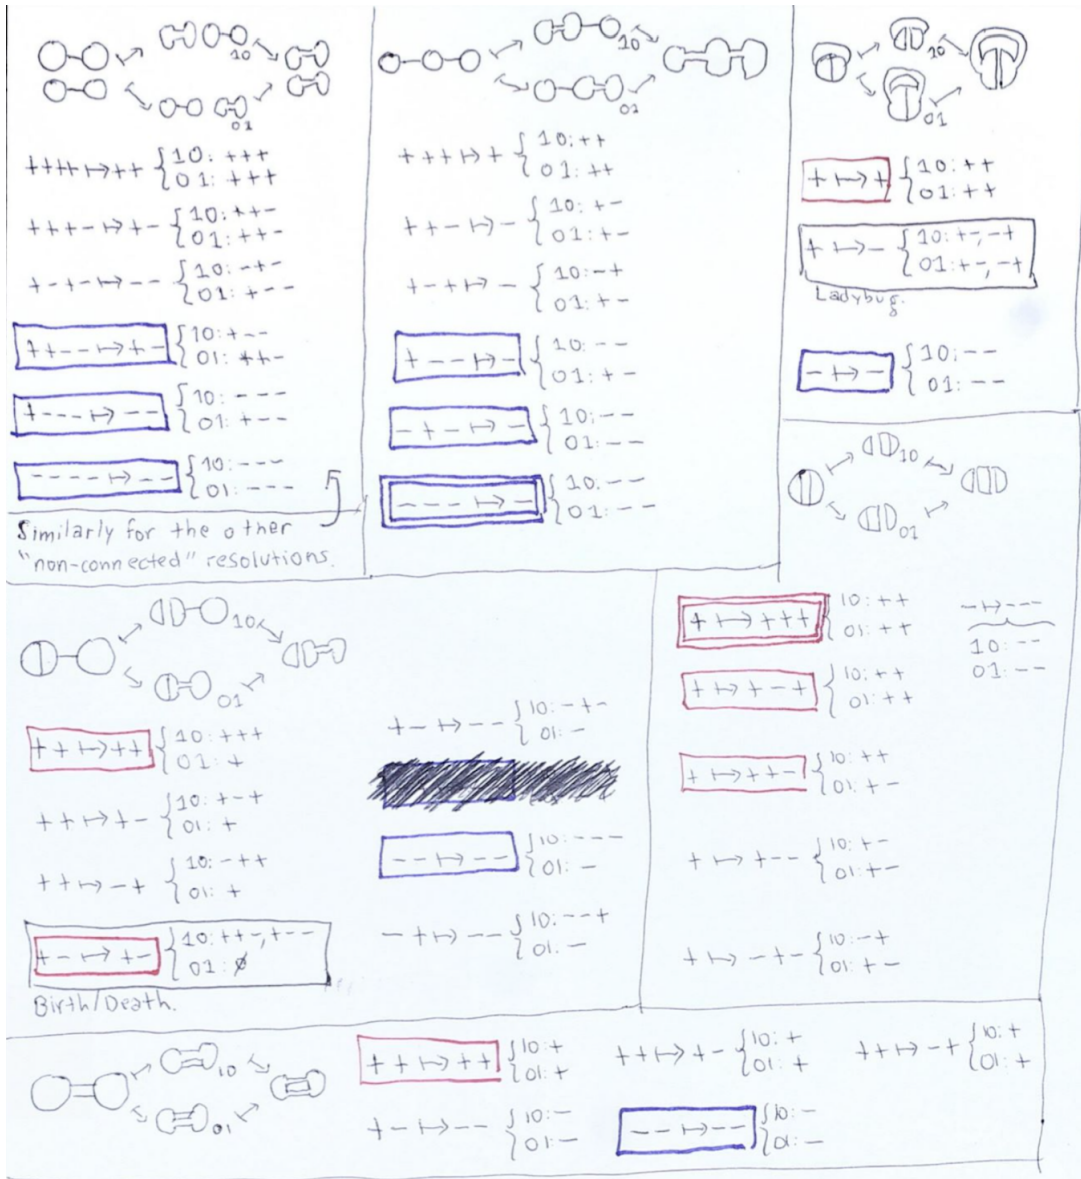 10
01
++++ ↦ ++ { 10: +++
01: +++
+++- ↦ +- { 10: ++-
01: ++-
+-+- ↦ -- { 10: -+-
01: +--
++-- ↦ +- { 10: +--
01: ++-
+--- ↦ -- { 10: ---
01: +--
---- ↦ -- { 10: ---
01: ---
Similarly for the other
"non-connected" resolutions.
10
01
+++ ↦ + { 10: ++
01: ++
++- ↦ - { 10: +-
01: +-
+-+ ↦ - { 10: -+
01: +-
+-- ↦ - { 10: --
01: +-
-+- ↦ - { 10: --
01: --
--- ↦ - { 10: --
01: --
10
01
+ ↦ + { 10: ++
01: ++
+ ↦ - { 10: +-, -+
01: +-, -+
Ladybug.
- ↦ - { 10: --
01: --
10
01
+ ↦ +++ { 10: ++
01: ++
+ ↦ +-+ { 10: ++
01: ++
+ ↦ ++- { 10: ++
01: +-
+ ↦ +-- { 10: +-
01: +-
+ ↦ -+- { 10: -+
01: +-
- ↦ ---
10: --
01: --
10
01
++ ↦ ++ { 10: +++
01: +
++ ↦ +- { 10: +-+
01: +
++ ↦ -+ { 10: -++
01: +
+- ↦ +- { 10: ++-, +--
01: ∅
Birth/Death.
+- ↦ -- { 10: -+-
01: -
-- ↦ -- { 10: ---
01: -
-+ ↦ -- { 10: --+
01: -
10
01
++ ↦ ++ { 10: +
01: +
++ ↦ +- { 10: +
01: +
++ ↦ -+ { 10: +
01: +
+- ↦ -- { 10: -
01: -
-- ↦ -- { 10: -
01: -